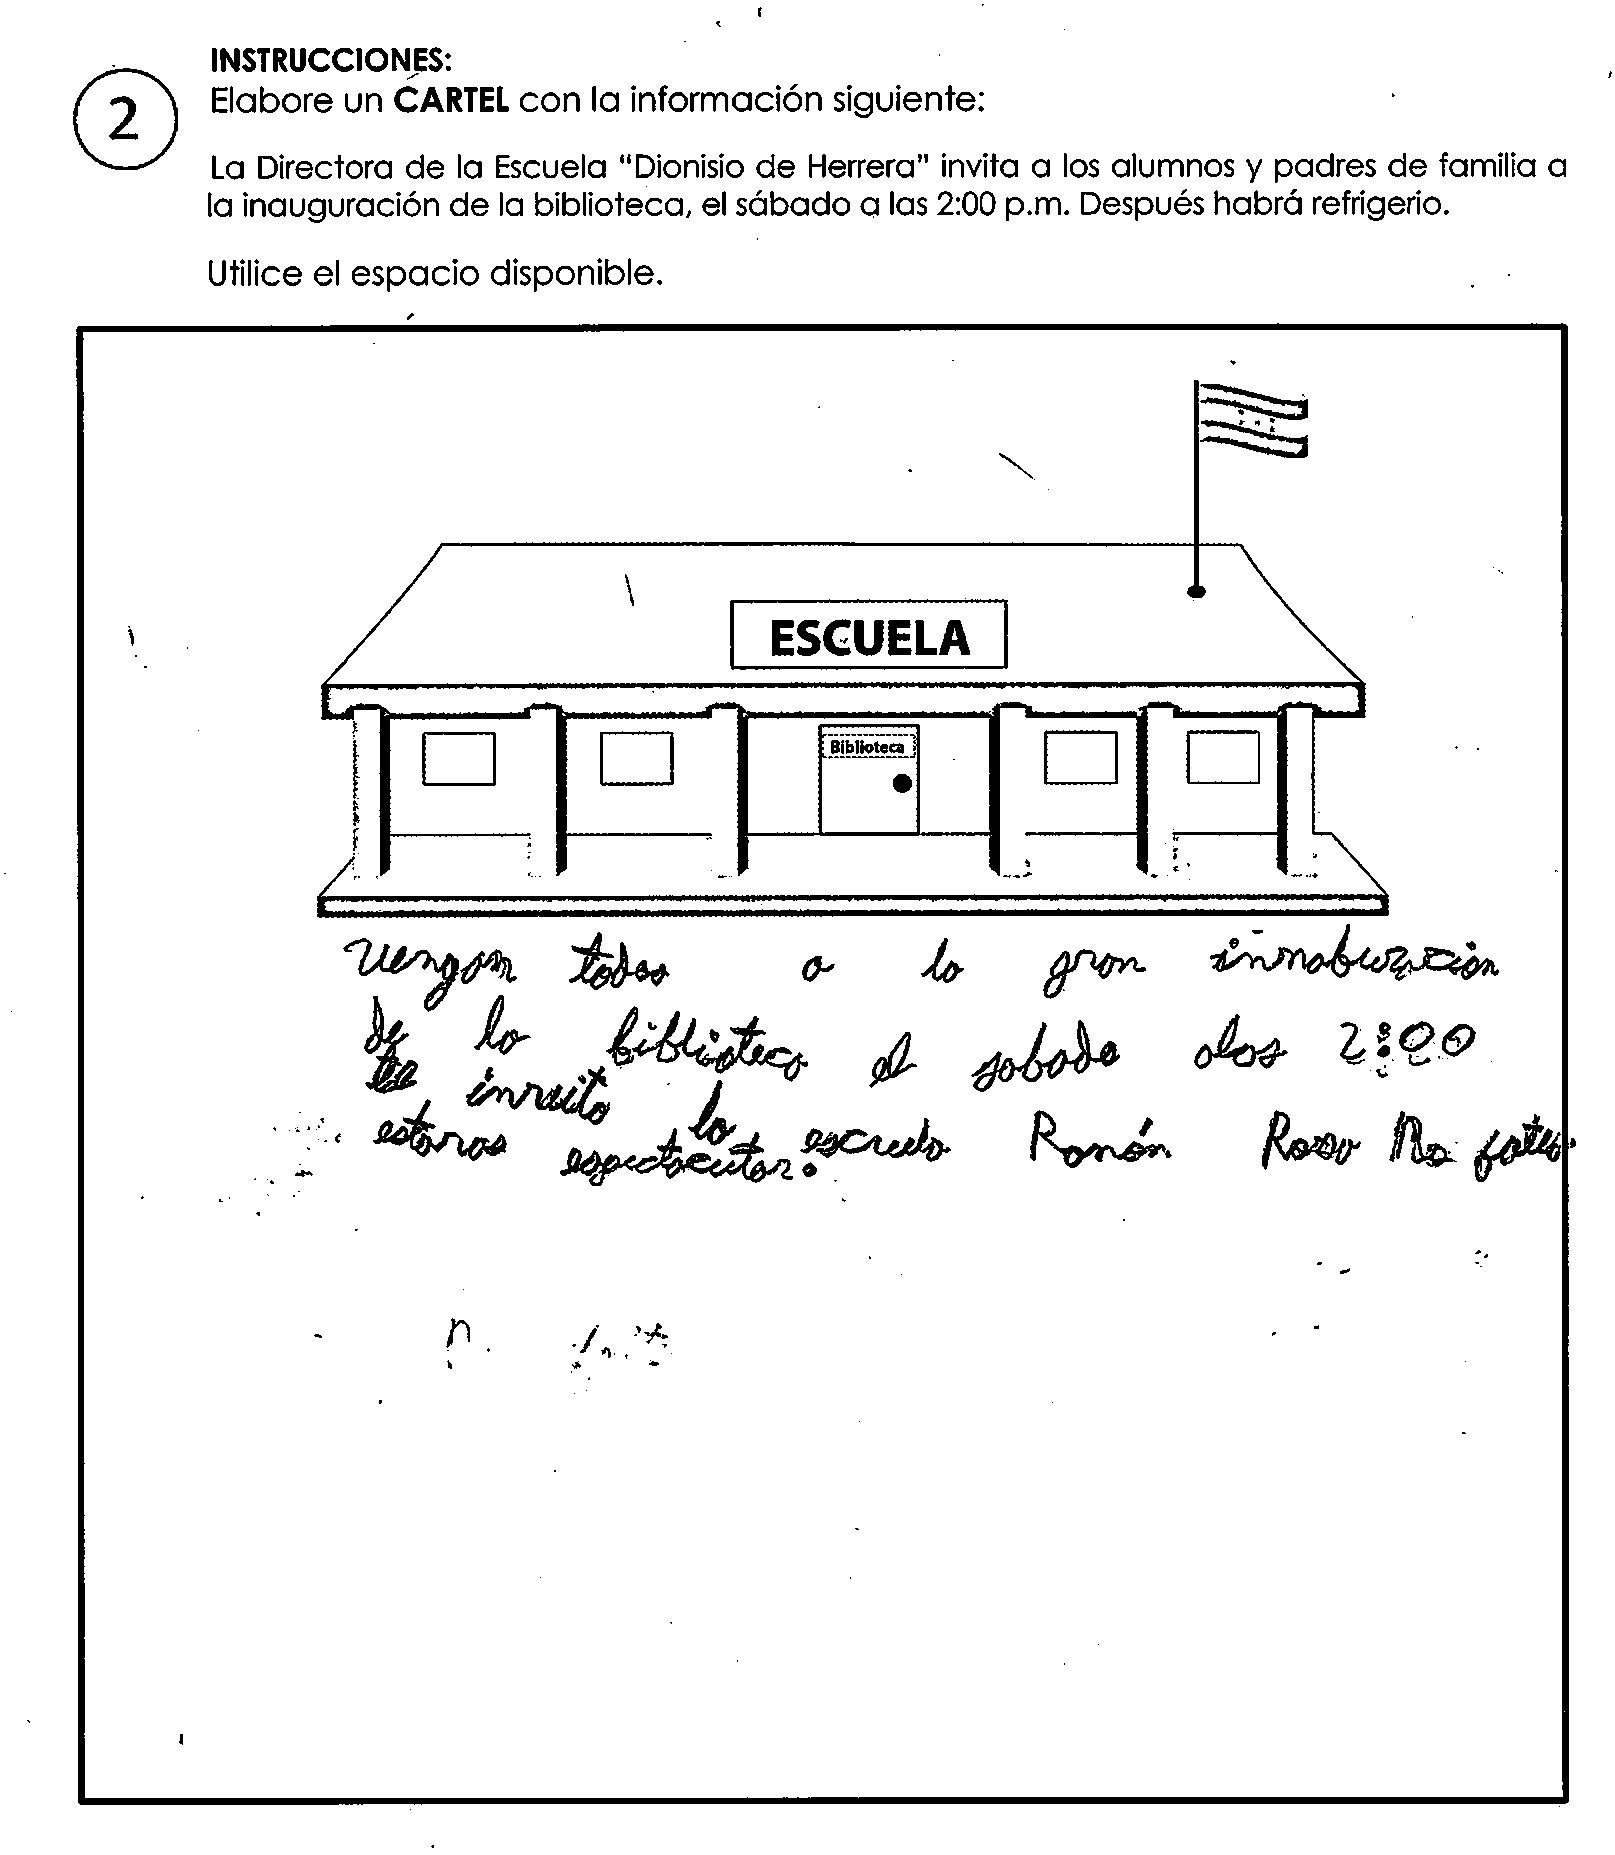 INSTRUCCIONES:
2
Elabore un CARTEL con la información siguiente:
La Directora de la Escuela "Dionisio de Herrera" invita a los alumnos y padres de familia a
la inauguración de la biblioteca, el sábado a las 2:00 p.m. Después habrá refrigerio.
Utilice el espacio disponible.
ESCUELA
Biblioteca
Vengan todos a la gran innaburación
de la biblioteca el sabado alas 2:00
la escuela Ramón Rosa No